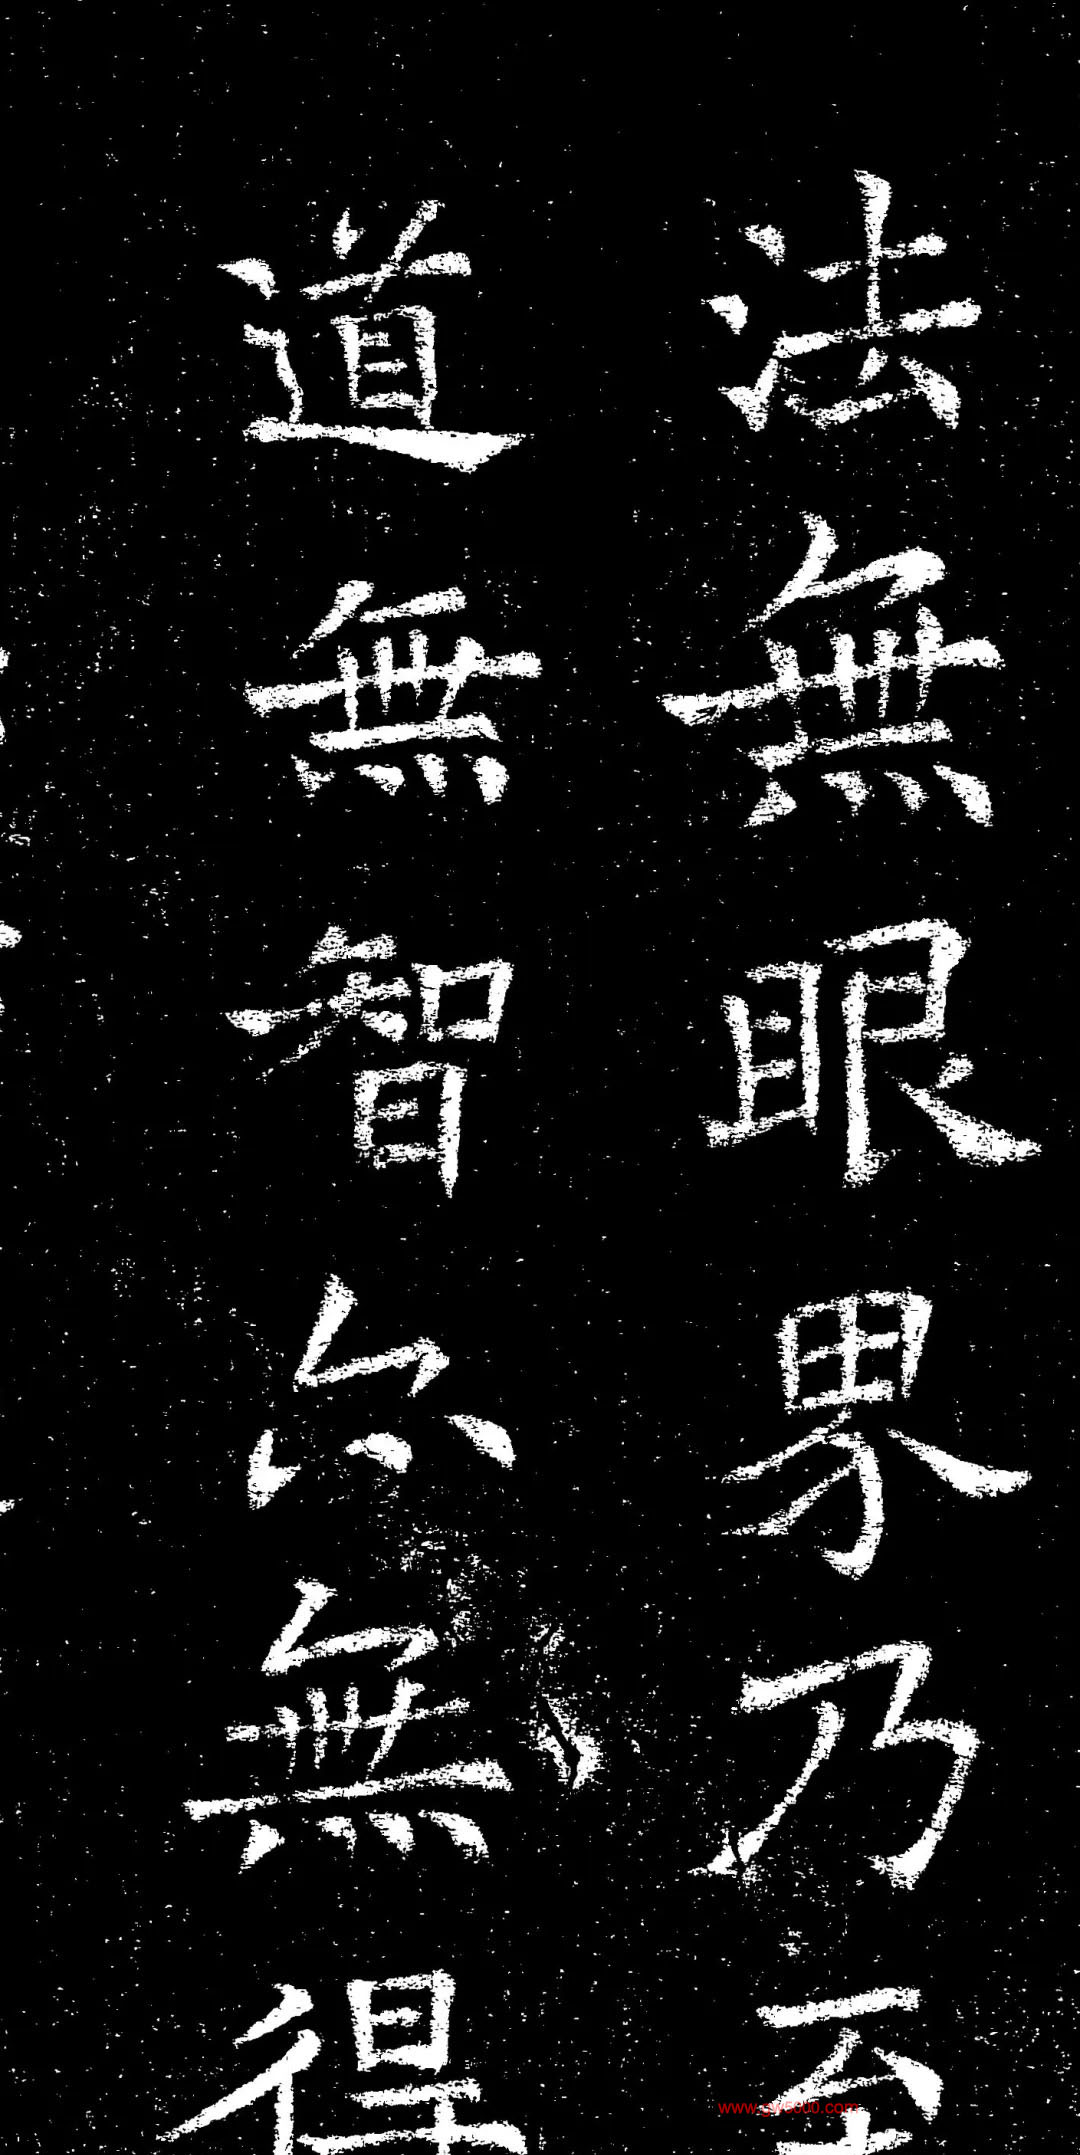 法無眼界乃至
道無智亦無得
www.gw5000.com